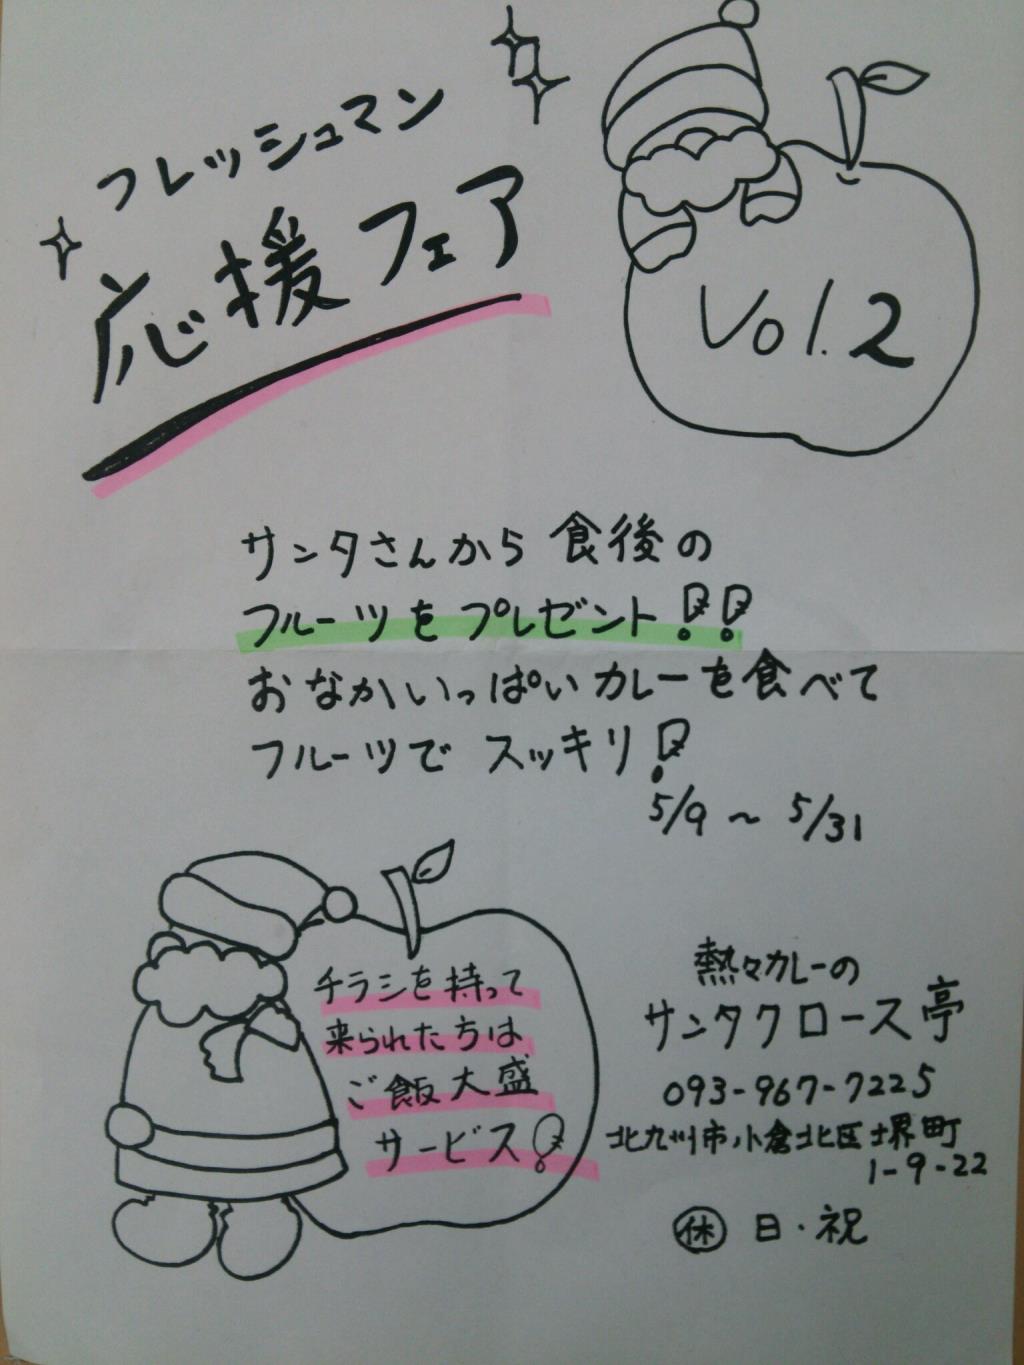 フレッシュマン
応援フェア
Vol.2
サンタさんから 食後の
フルーツを プレゼント!!
おなかいっぱいカレーを食べて
フルーツで スッキリ!
5/9 ~ 5/31
チラシを持って
来られた方は
ご飯大盛
サービス!
熱々カレーの
サンタクロース亭
093-967-7225
北九州市小倉北区堺町
1-9-22
㊡ 日・祝